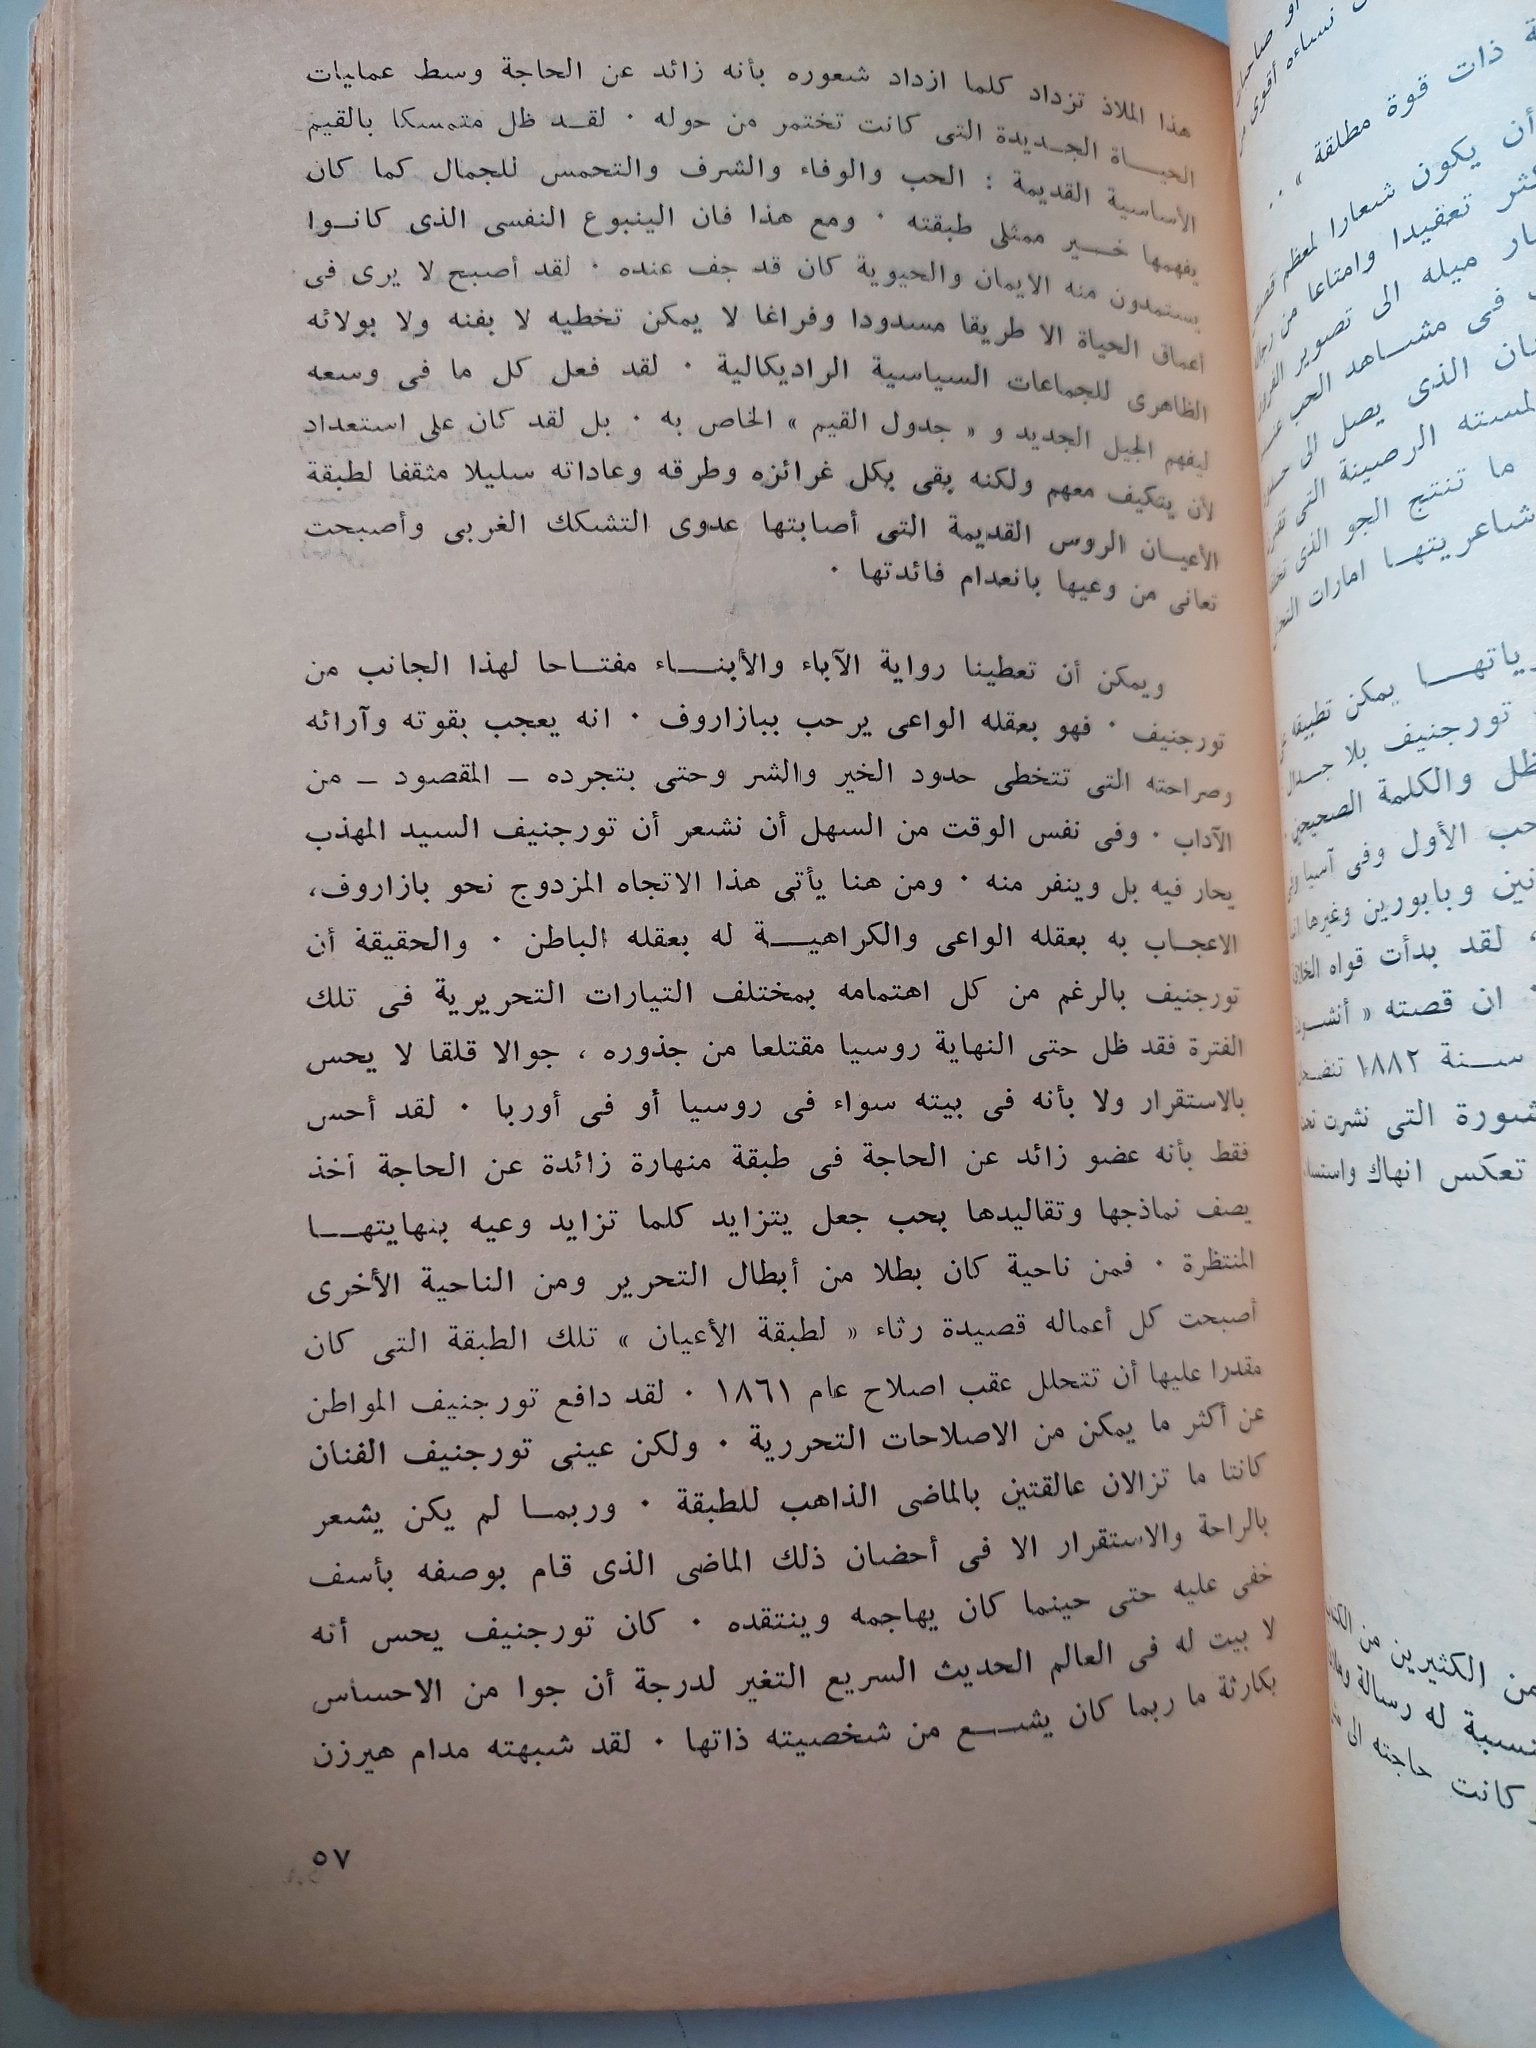 هذا الملاذ تزداد كلما ازداد شعوره بأنه زائد عن الحاجة وسط عمليات
الحيـاة الجـديدة التى كانت تختمر من حوله · لقـد ظل متمسكا بالقيم
الأساسية القديمة : الحب والوفاء والشرف والتحمس للجمال كما كان
يفهمها خـير ممثلى طبقته · ومع هذا فان الينبوع النفسى الذى كانـوا
يستمدون منه الايمان والحيوية كان قد جف عنده · لقد أصبح لا يرى فى
أعماق الحياة الا طريقا مسدودا وفراغا لا يمكن تخطيه لا بفنه ولا بولائه
الظاهرى للجماعات السياسية الراديكالية · لقد فعل كل ما فى وسعه
ليفهم الجيل الجديد و « جدول القيم » الخاص به · بل لقد كان على استعداد
لأن يتكيف معهم ولكنه بقى بكل غرائزه وطرقه وعاداته سليلا مثقفا لطبقة
الأعيـان الروس القديمة التى أصابتها عدوى التشكك الغربى وأصبحت
تعانى من وعيها بانعدام فائدتها ·
ويمكن أن تعطينا رواية الآباء والأبنـاء مفتـاحا لهذا الجانب من
تورجنيف · فهو بعقله الواعى يرحب ببازاروف · انه يعجب بقوته وآرائه
وصراحته التى تتخطى حدود الخير والشر وحتى بتجرده – المقصود – من
الآداب · وفى نفس الوقت من السهل أن نشعر أن تورجنيف السيد المهذب
يحار فيه بل وينفر منه · ومن هنا يأتى هذا الاتجاه المزدوج نحو بازاروف،
الاعجـاب به بعقله الواعى والكراهيـة له بعقله الباطن · والحقيقة أن
تورجنيف بالرغم من كل اهتمامه بمختلف التيارات التحريرية فى تلك
الفترة فقد ظل حتى النهاية روسيا مقتلعا من جذوره ، جوالا قلقا لا يحس
بالاستقرار ولا بأنه فى بيته سواء فى روسيا أو فى أوربا · لقد أحس
فقط بأنه عضو زائد عن الحاجة فى طبقة منهارة زائدة عن الحاجة أخذ
يصف نماذجها وتقاليدها بحب جعل يتزايد كلما تزايد وعيه بنهايتهـا
المنتظرة · فمن ناحية كان بطلا من أبطال التحرير ومن الناحية الأخرى
أصبحت كل أعماله قصيدة رثاء « لطبقة الأعيان » تلك الطبقة التى كان
مقدرا عليها أن تتحلل عقب اصلاح عام ١٨٦١ · لقد دافع تورجنيف المواطن
عن أكثر ما يمكن من الاصلاحات التحررية · ولكن عينى تورجنيف الفنان
كانتا ما تزالان عالقتين بالماضى الذاهب للطبقة · وربمـا لم يكن يشعر
بالراحة والاستقرار الا فى أحضان ذلك الماضى الذى قام بوصفه بأسف
خفى عليه حتى حينما كان يهاجمه وينتقده · كان تورجنيف يحس أنه
لا بيت له فى العالم الحديث السريع التغير لدرجة أن جوا من الاحساس
بكارثة ما ربما كان يشـع من شخصيته ذاتها · لقد شبهته مدام هيرزن
٥٧
نساءه أقوى
ذات قوة مطلقة » ··
أن يكون شعارا لمعظم
تعقيدا وامتاعا من
ميله الى تصوير
فى مشـاهد الحب
الذى يصل الى
الرصينة التى
ما تنتج الجو الذى
شاعريتهـا امارات
يمكن تطبيقه
تورجنيف بلا جـدال
والكلمة الصحيحة
الأول وفى آسيا
وبابورين وغيرها
، لقد بدأت قواه
· ان قصته «
سـنة ١٨٨٢
التى نشرت
تعكس انهاك
من الكثيرين من
له رسالة
كانت حاجته الى